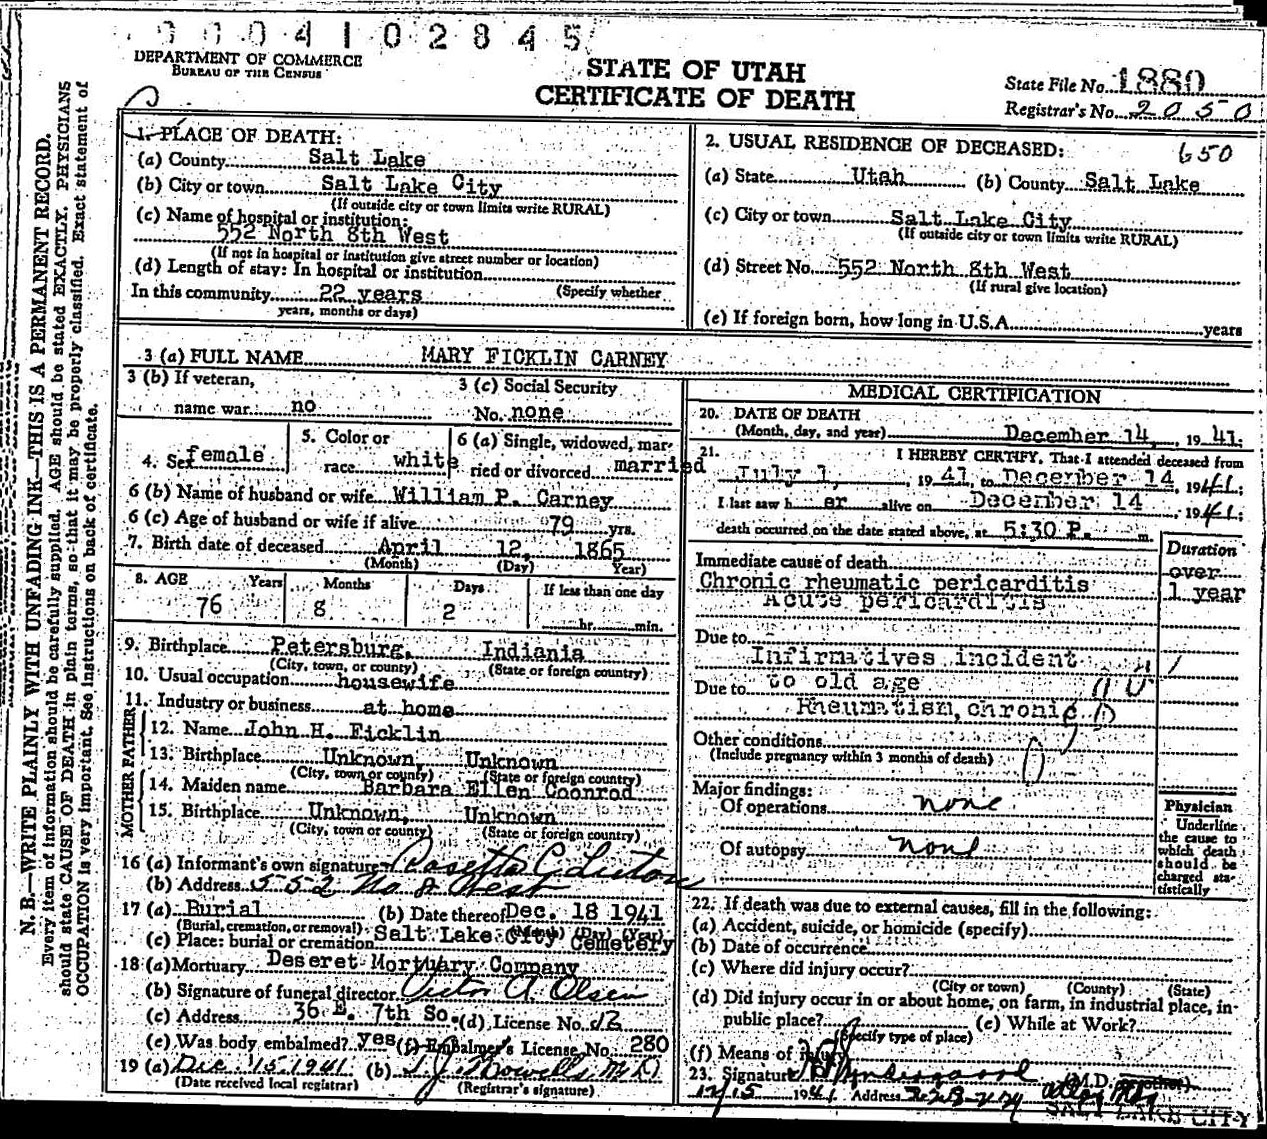 0004102845
DEPARTMENT OF COMMERCE
BUREAU OF THE CENSUS
STATE OF UTAH
CERTIFICATE OF DEATH
State File No. 1880
Registrar's No. 2050
N. B.—WRITE PLAINLY WITH UNFADING INK—THIS IS A PERMANENT RECORD.
Every item of information should be carefully supplied. AGE should be stated EXACTLY. PHYSICIANS
should state CAUSE OF DEATH in plain terms, so that it may be properly classified. Exact statement of
OCCUPATION is very important. See instructions on back of certificate.
1. PLACE OF DEATH:
(a) County Salt Lake
(b) City or town Salt Lake City
(If outside city or town limits write RURAL)
(c) Name of hospital or institution:
552 North 8th West
(If not in hospital or institution give street number or location)
(d) Length of stay: In hospital or institution
In this community 22 years (Specify whether
years, months or days)
2. USUAL RESIDENCE OF DECEASED: 650
(a) State Utah (b) County Salt Lake
(c) City or town Salt Lake City
(If outside city or town limits write RURAL)
(d) Street No. 552 North 8th West
(If rural give location)
(e) If foreign born, how long in U.S.A. years
3 (a) FULL NAME MARY FICKLIN CARNEY
3 (b) If veteran,
name war: no
3 (c) Social Security
No. none
4. Sex female
5. Color or
race white
6 (a) Single, widowed, mar-
ried or divorced married
6 (b) Name of husband or wife William P. Carney
6 (c) Age of husband or wife if alive 79 yrs.
7. Birth date of deceased April 12, 1865
(Month) (Day) Year)
8. AGE Years Months Days If less than one day
76 8 2 hr. min.
9. Birthplace Petersburg, Indiania
(City, town, or county) (State or foreign country)
10. Usual occupation housewife
11. Industry or business at home
FATHER
12. Name John H. Ficklin
13. Birthplace Unknown, Unknown
(City, town or county) (State or foreign country)
MOTHER
14. Maiden name Barbara Ellen Coonrod
15. Birthplace Unknown, Unknown
(City, town or county) (State or foreign country)
16 (a) Informant's own signature Rosetta C. Liston
(b) Address 552 No 8 West
17 (a) Burial (b) Date thereof Dec. 18 1941
(Burial, cremation, or removal) (Month) (Day) (Year)
(c) Place: burial or cremation Salt Lake City Cemetery
18 (a) Mortuary Deseret Mortuary Company
(b) Signature of funeral director Victor A Olsen
(c) Address 36 E. 7th So. (d) License No. 12
(e) Was body embalmed? yes (f) Embalmer's License No. 280
19 (a) Dec 15 1941 (b) T. J. Howells M.D.
(Date received local registrar) (Registrar's signature)
MEDICAL CERTIFICATION
20. DATE OF DEATH
(Month, day, and year) December 14, 1941.
21. I HEREBY CERTIFY, That I attended deceased from
July 1, 1941, to December 14 1941;
I last saw her alive on December 14 1941;
death occurred on the date stated above, at 5:30 P. m.
Duration
Immediate cause of death
over
Chronic rheumatic pericarditis 1 year
Acute pericarditis
Due to
Infirmatives incident
Due to to old age
Rheumatism, chronic
Other conditions
(Include pregnancy within 3 months of death)
Major findings:
Of operations none
Of autopsy none
Physician
Underline
the cause to
which death
should be
charged sta-
tistically
22. If death was due to external causes, fill in the following:
(a) Accident, suicide, or homicide (specify)
(b) Date of occurrence
(c) Where did injury occur?
(City or town) (County) (State)
(d) Did injury occur in or about home, on farm, in industrial place, in-
public place? (e) While at Work?
(Specify type of place)
(f) Means of injury
23. Signature (M.D. or other)
12/15 1941 Address
SALT LAKE CITY